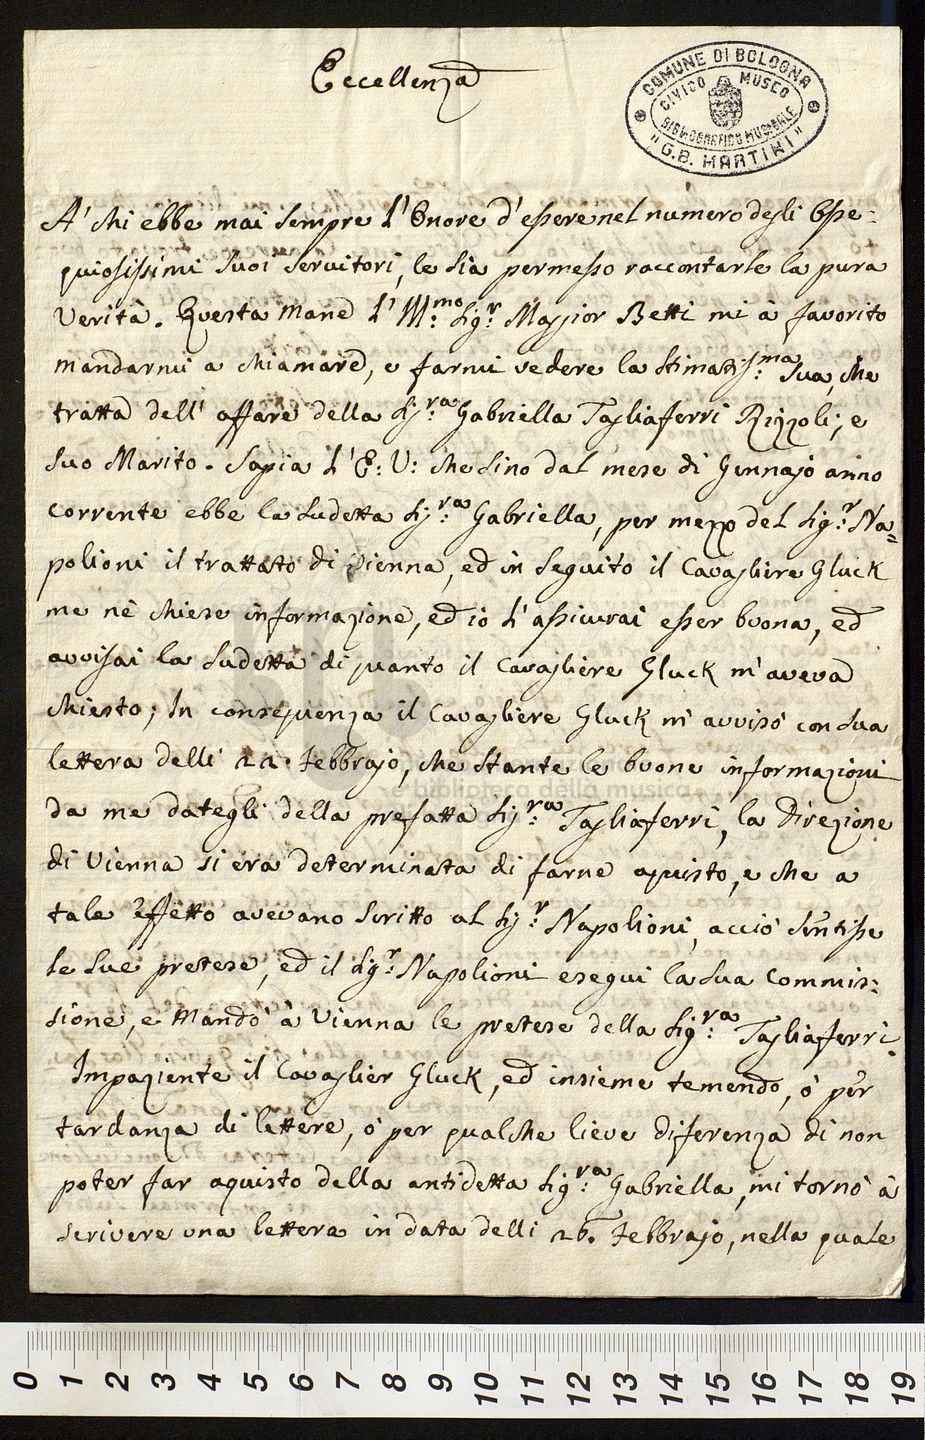 Eccellenza
COMUNE DI BOLOGNA
CIVICO MUSEO
BIBLIOGRAFICO MUSICALE
"G.B. MARTINI"
A' chi ebbe mai sempre l'Onore d'essere nel numero degli Osse=
quiosissimi suoi servitori, le sia permesso raccontarle la pura
verità. Questa mane l'Ill:mo Sig:r Maggior Betti mi à favorito
mandarmi a chiamare, e farmi vedere la Stimatis:ma Sua, che
tratta dell'affare della Sig:ra Gabriella Tagliaferri Rizzoli, e
suo Marito. Sapia l'E: V: che sino dal mese di Gennajo anno
corrente ebbe la sudetta Sig:ra Gabriella, per mezzo del Sig:r Na=
polioni il trattato di Vienna, ed in seguito il Cavagliere Gluck
me nè chiese informazione, ed io l'assicurai esser buona, ed
avvisai la sudetta di quanto il Cavagliere Gluck m'aveva
chiesto; In conseguenza il Cavagliere Gluck m'avvisò con sua
lettera delli 22. Febbrajo, che stante le buone informazioni
da me dategli della prefatta Sig:ra Tagliaferri, la Direzione
di Vienna si era determinata di farne aquisto, e che a
tale effetto avevano scritto al Sig:r Napolioni, acciò sentisse
le sue pretese, ed il Sig:r Napolioni eseguì la sua commis:
sione, e mandò à Vienna le pretese della Sig:ra Tagliaferri.
Impaziente il Cavaglier Gluck, ed insieme temendo, ò per
tardanza di lettere, ò per qualche lieve diferenza di non
poter far aquisto della antidetta Sig:ra Gabriella, mi tornò à
scrivere una lettera in data delli 26. Febbrajo, nella quale
e biblioteca della musica
0 1 2 3 4 5 6 7 8 9 10 11 12 13 14 15 16 17 18 19